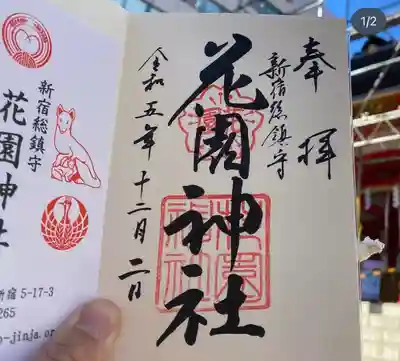 1/2
奉拝
新宿総鎮守
花園神社
令和五年十二月二日
花園神社
新宿総鎮守
花園神社
新宿 5-17-3
265
o-jinja.or